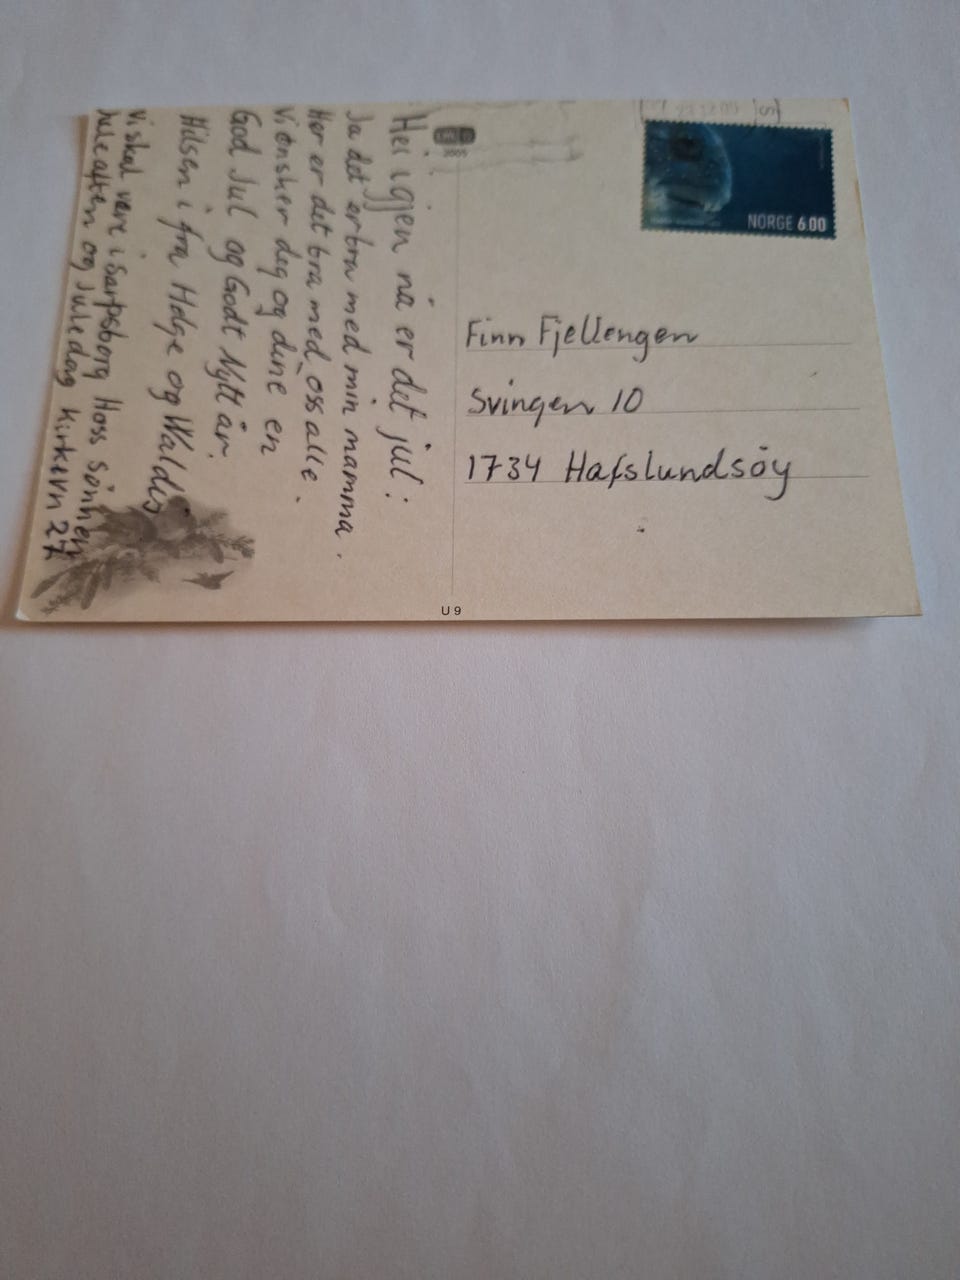 Hei igjen nå er det jul:
Ja det er bra med min mamma.
Her er det bra med oss alle.
Vi ønsker deg og dine en
God Jul og Godt Nytt år.
Hilsen i fra Helge og Waldis
Vi skal være i Sarpsborg Hoss Sønnen
Juleaften og Juledag Kirkevn 27
2005
NORGE 6.00
Finn Fjellengen
Svingen 10
1734 Hafslundsøy
U 9